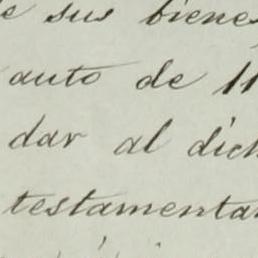 e sus bienes
auto de 11
dar al dich
testamenta